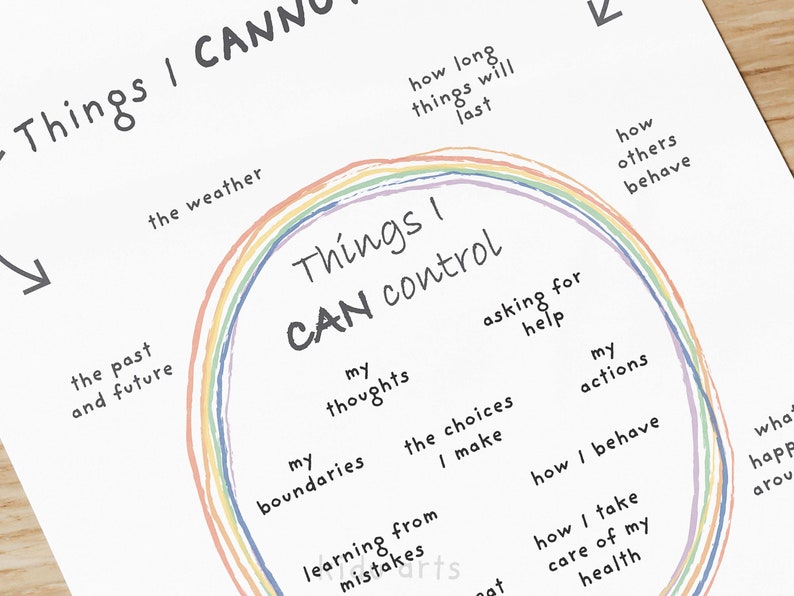 Things I CANNOT
how long
things will
last
how
others
behave
the weather
Things I
CAN control
asking for
help
the past
and future
my
thoughts
my
actions
the choices
I make
how I behave
my
boundaries
learning from
mistakes
how I take
care of my
health
kids arts